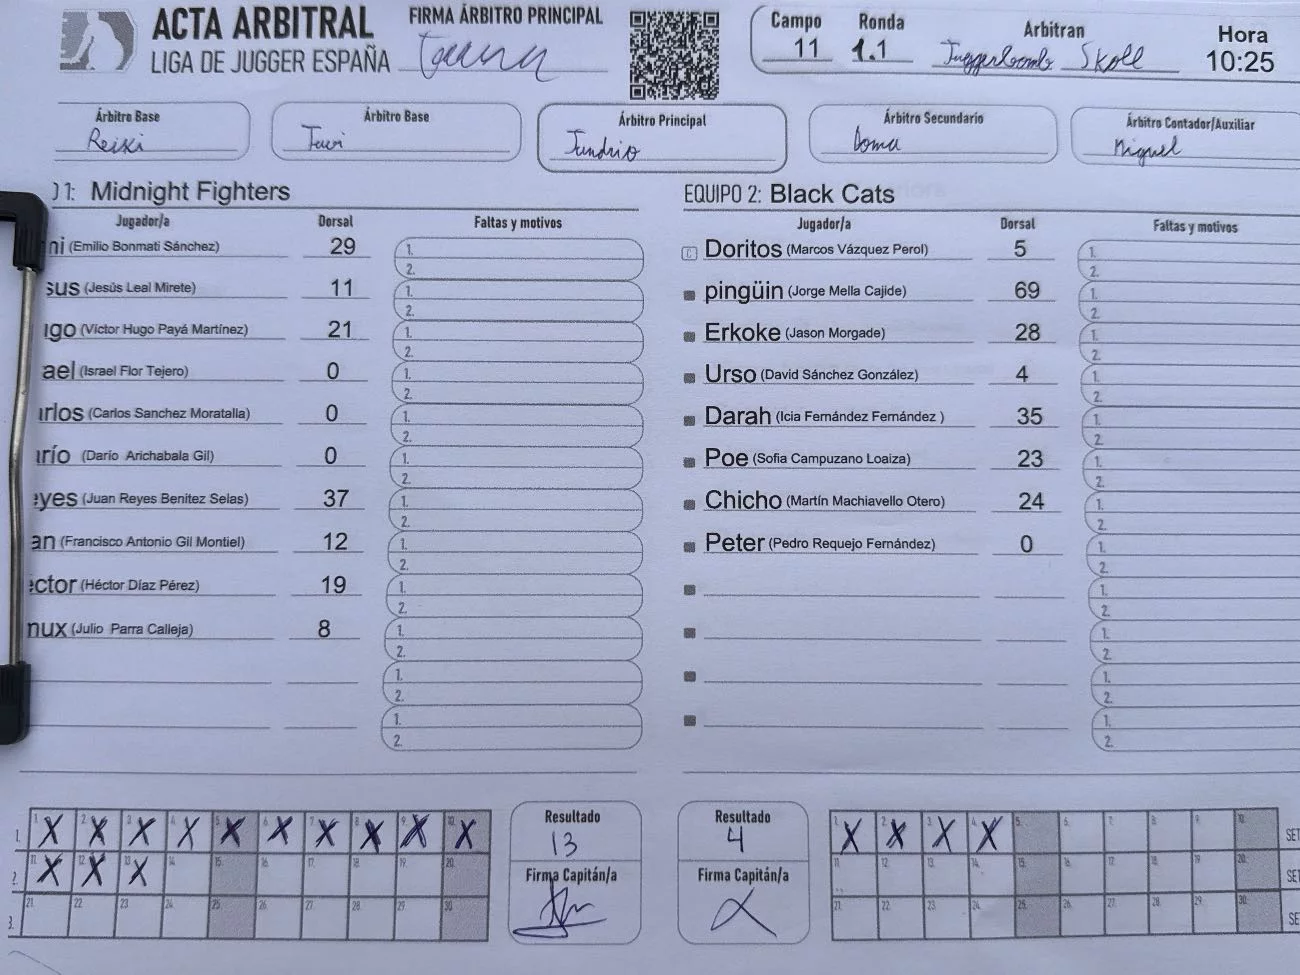 ACTA ARBITRAL
LIGA DE JUGGER ESPAÑA
FIRMA ÁRBITRO PRINCIPAL
Campo
11
Ronda
1.1
Arbitran
Juggerbomb Skoll
Hora
10:25
Árbitro Base
Reixi
Árbitro Base
Javi
Árbitro Principal
Jandrio
Árbitro Secundario
Doma
Árbitro Contador/Auxiliar
Miguel
O 1: Midnight Fighters
Jugador/a Dorsal Faltas y motivos
mi (Emilio Bonmati Sánchez) 29 1. 2.
sus (Jesús Leal Mirete) 11 1. 2.
ugo (Víctor Hugo Payá Martínez) 21 1. 2.
ael (Israel Flor Tejero) 0 1. 2.
arlos (Carlos Sanchez Moratalla) 0 1. 2.
arío (Darío Arichabala Gil) 0 1. 2.
eyes (Juan Reyes Benítez Selas) 37 1. 2.
an (Francisco Antonio Gil Montiel) 12 1. 2.
ector (Héctor Díaz Pérez) 19 1. 2.
nux (Julio Parra Calleja) 8 1. 2.
1. 2.
1. 2.
EQUIPO 2: Black Cats
Jugador/a Dorsal Faltas y motivos
C Doritos (Marcos Vázquez Perol) 5 1. 2.
pingüin (Jorge Mella Cajide) 69 1. 2.
Erkoke (Jason Morgade) 28 1. 2.
Urso (David Sánchez González) 4 1. 2.
Darah (Icia Fernández Fernández ) 35 1. 2.
Poe (Sofia Campuzano Loaiza) 23 1. 2.
Chicho (Martín Machiavello Otero) 24 1. 2.
Peter (Pedro Requejo Fernández) 0 1. 2.
1. 2.
1. 2.
1. 2.
1. 2.
1. 1. X 2. X 3. X 4. X 5. X 6. X 7. X 8. X 9. X 10. X
2. 11. X 12. X 13. X 14. 15. 16. 17. 18. 19. 20.
3. 21. 22. 23. 24. 25. 26. 27. 28. 29. 30.
Resultado
13
Firma Capitán/a
Resultado
4
Firma Capitán/a
1. X 2. X 3. X 4. X 5. 6. 7. 8. 9. 10. SET
11. 12. 13. 14. 15. 16. 17. 18. 19. 20. SET
21. 22. 23. 24. 25. 26. 27. 28. 29. 30. SE